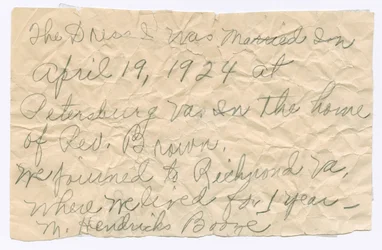 The Dress I was Married In
April 19, 1924 at
Petersburg Va. In The home
of Rev. Brown.
We journed to Richmond Va.
Where We lived for 1 year –
M. Hendricks Boone